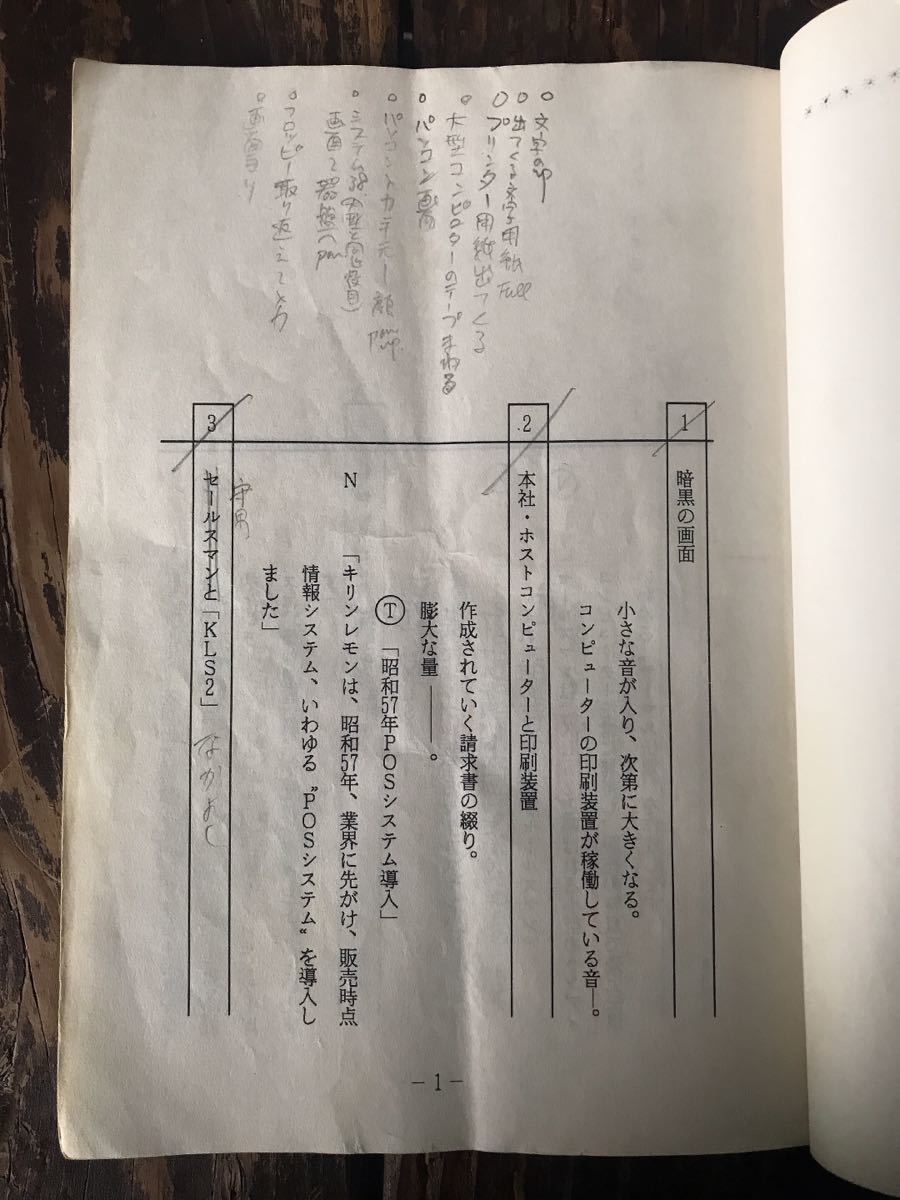 文字の印
出てくる 用紙 Full
プリンター用紙出てくる
大型コンピューターのテープまわる
パソコン画面
パソコン 顔 Pan up.
画面で Pan
フロッピー取り
1
暗黒の画面
小さな音が入り、次第に大きくなる。
コンピューターの印刷装置が稼働している音―。
2
本社・ホストコンピューターと印刷装置
作成されていく請求書の綴り。
膨大な量――。
Ⓣ「昭和57年POSシステム導入」
N「キリンレモンは、昭和57年、業界に先がけ、販売時点
情報システム、いわゆる〝POSシステム〟を導入し
ました」
3
セールスマンと「KLS2」
なかよし
－1－